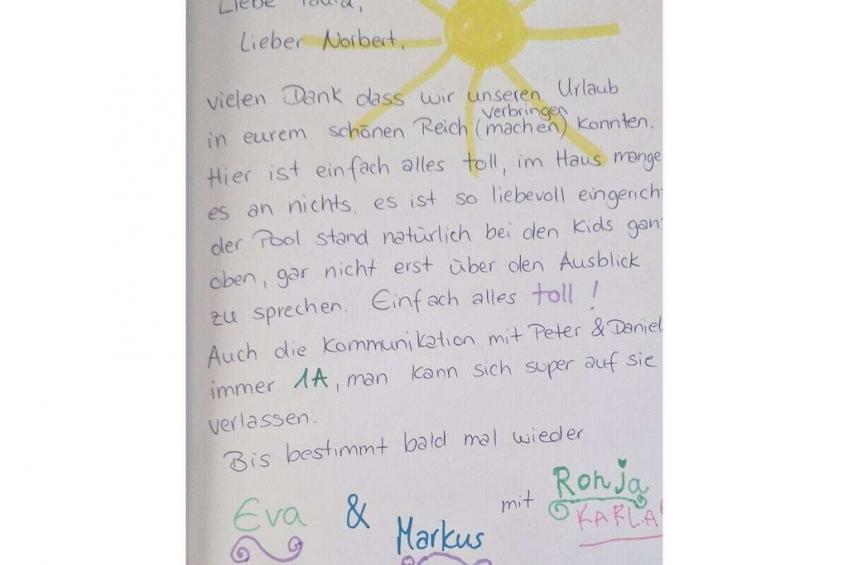 Liebe
Lieber Norbert,
vielen Dank dass wir unseren Urlaub
verbringen
in eurem schönen Reich (machen) konnten.
Hier ist einfach alles toll, im Haus mange
es an nichts, es ist so liebevoll eingerich
der Pool stand natürlich bei den Kids gan
oben, gar nicht erst über den Ausblick
zu sprechen. Einfach alles toll!
Auch die Kommunikation mit Peter & Daniel
immer 1A, man kann sich super auf sie
verlassen.
Bis bestimmt bald mal wieder
Eva & Markus mit Ronja
KARLA